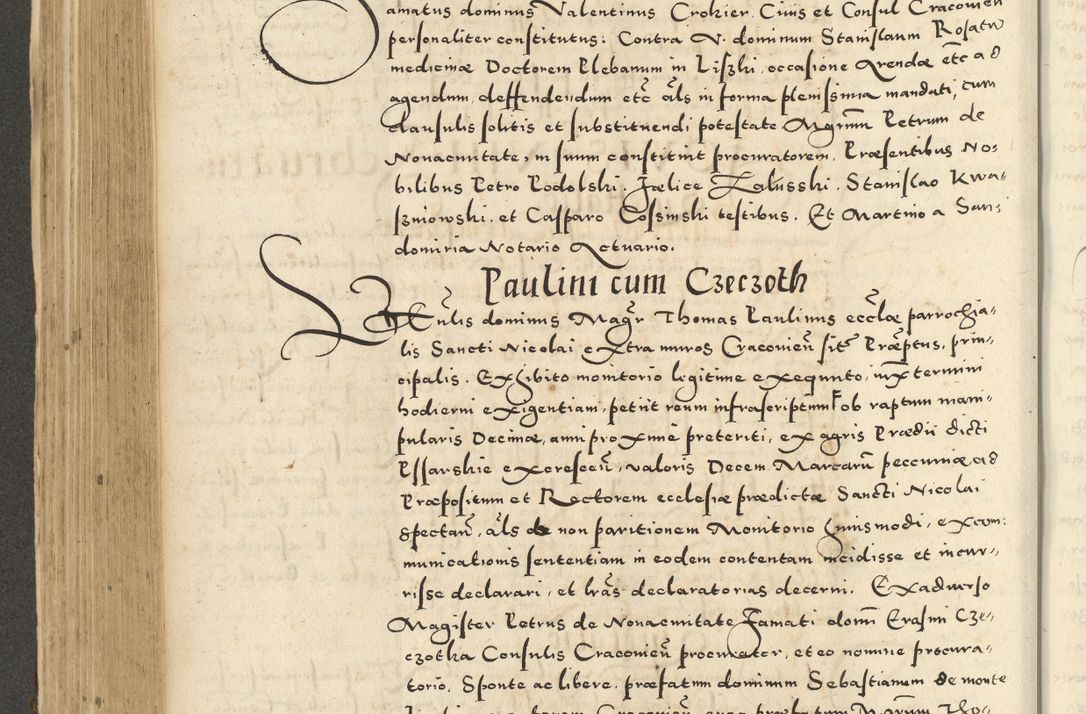 amatus dominus Valentinus Crokier Ciuis et Consul Cracouień
personaliter constitutus. Contra V. dominum Stanislaum Rosatw
medicinæ Doctorem Plebanum in Liszki, occasione Arendæ etc̄ ad
agendum, deffendendum etc̄ als̃ in forma plenissima mandati, cum
clausulis solitis et substituendi potestate Mgr̃um Petrum de
Nouaciuitate, in suum constituit procuratorem. Præsentibus No-
bilibus Petro Podolski. Fælice Zalusski. Stanislao Kwa-
szniowski. et Casparo Cossinski testibus. Et Martino a San-
domiria Notario Actuario.
Paulini cum Czeczoth
Veñlis dominus Magr̃ Thomas Paulinus eccłæ parrochia-
lis Sancti Nicolai extra muros Cracouień sitæ Præptus, prin-
cipalis. Exhibito monitorio legitime exequuto, iux̃ termini
hodierni exigentiam, petiit reum infrascriptum ob raptum mani-
pularis Decimæ, anni proxime preteriti, ex agris Prædii dicti
Pssarskie excresceñ, valoris Decem Marcarũ peccuniæ, ad
Præpositum et Rectorem ecclesiæ prædictæ Sancti Nicolai
spectañ, als̃ de non paritionem Monitorio huiusmodi, excom-
municationis sententiam in eodem contentam incidisse et incur-
risse declarari, et lras̃ declaratorias decerni. Ex aduerso
Magister Petrus de Nouaciuitate Famati domĩ Erasmi Cze-
czotha Consulis Cracouień procurator, et eo nomine procura-
torio. Sponte ac libere, præfatum dominum Sebastianum de monte